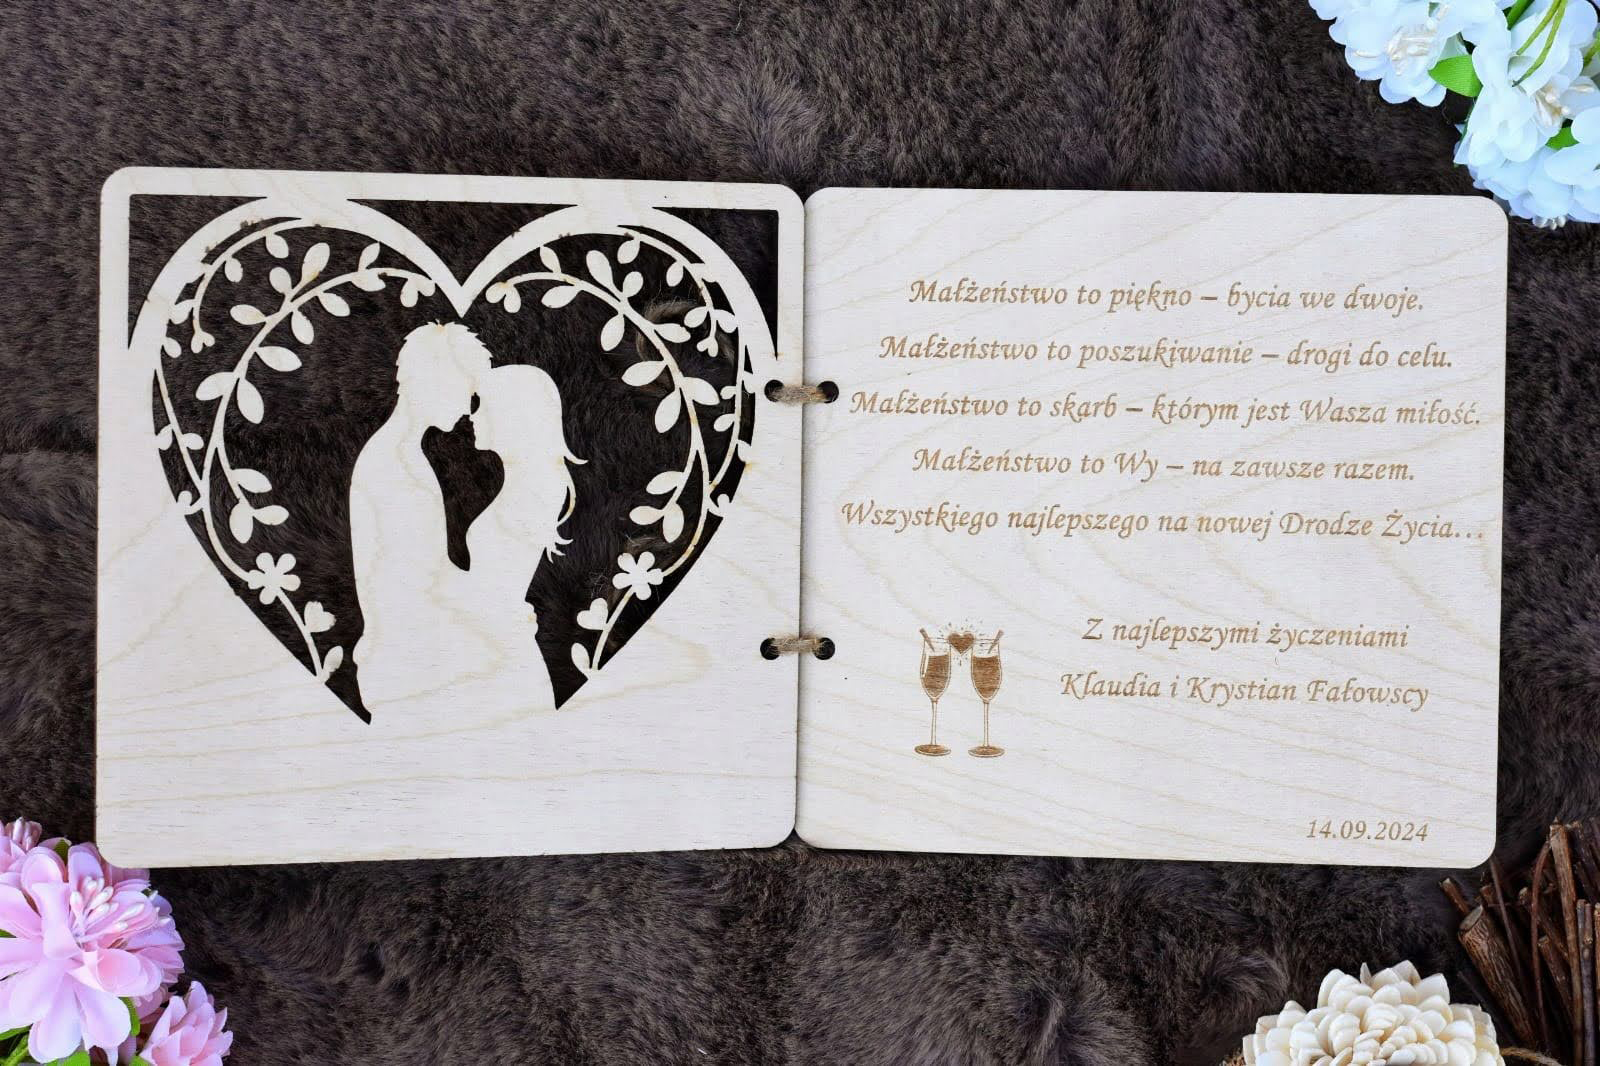 Małżeństwo to piękno – bycia we dwoje.
Małżeństwo to poszukiwanie – drogi do celu.
Małżeństwo to skarb – którym jest Wasza miłość.
Małżeństwo to Wy – na zawsze razem.
Wszystkiego najlepszego na nowej Drodze Życia...
Z najlepszymi życzeniami
Klaudia i Krystian Fałowscy
14.09.2024